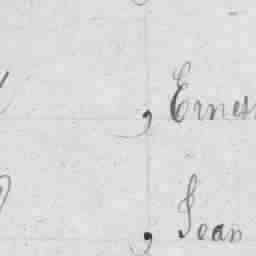 , Ernes
, Jean